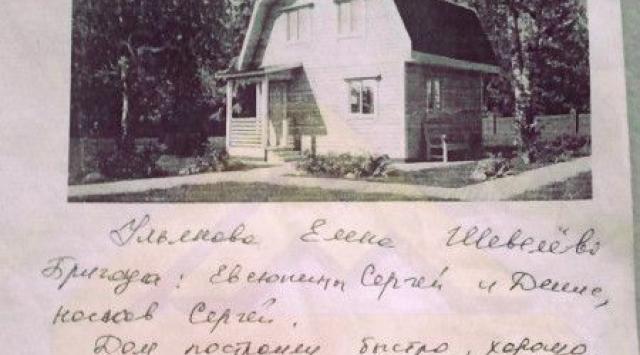 Ульянова Елена Шевелёво
Бригада: Евсюнины Сергей и Денис,
Носков Сергей.
Дом построен быстро, хорошо